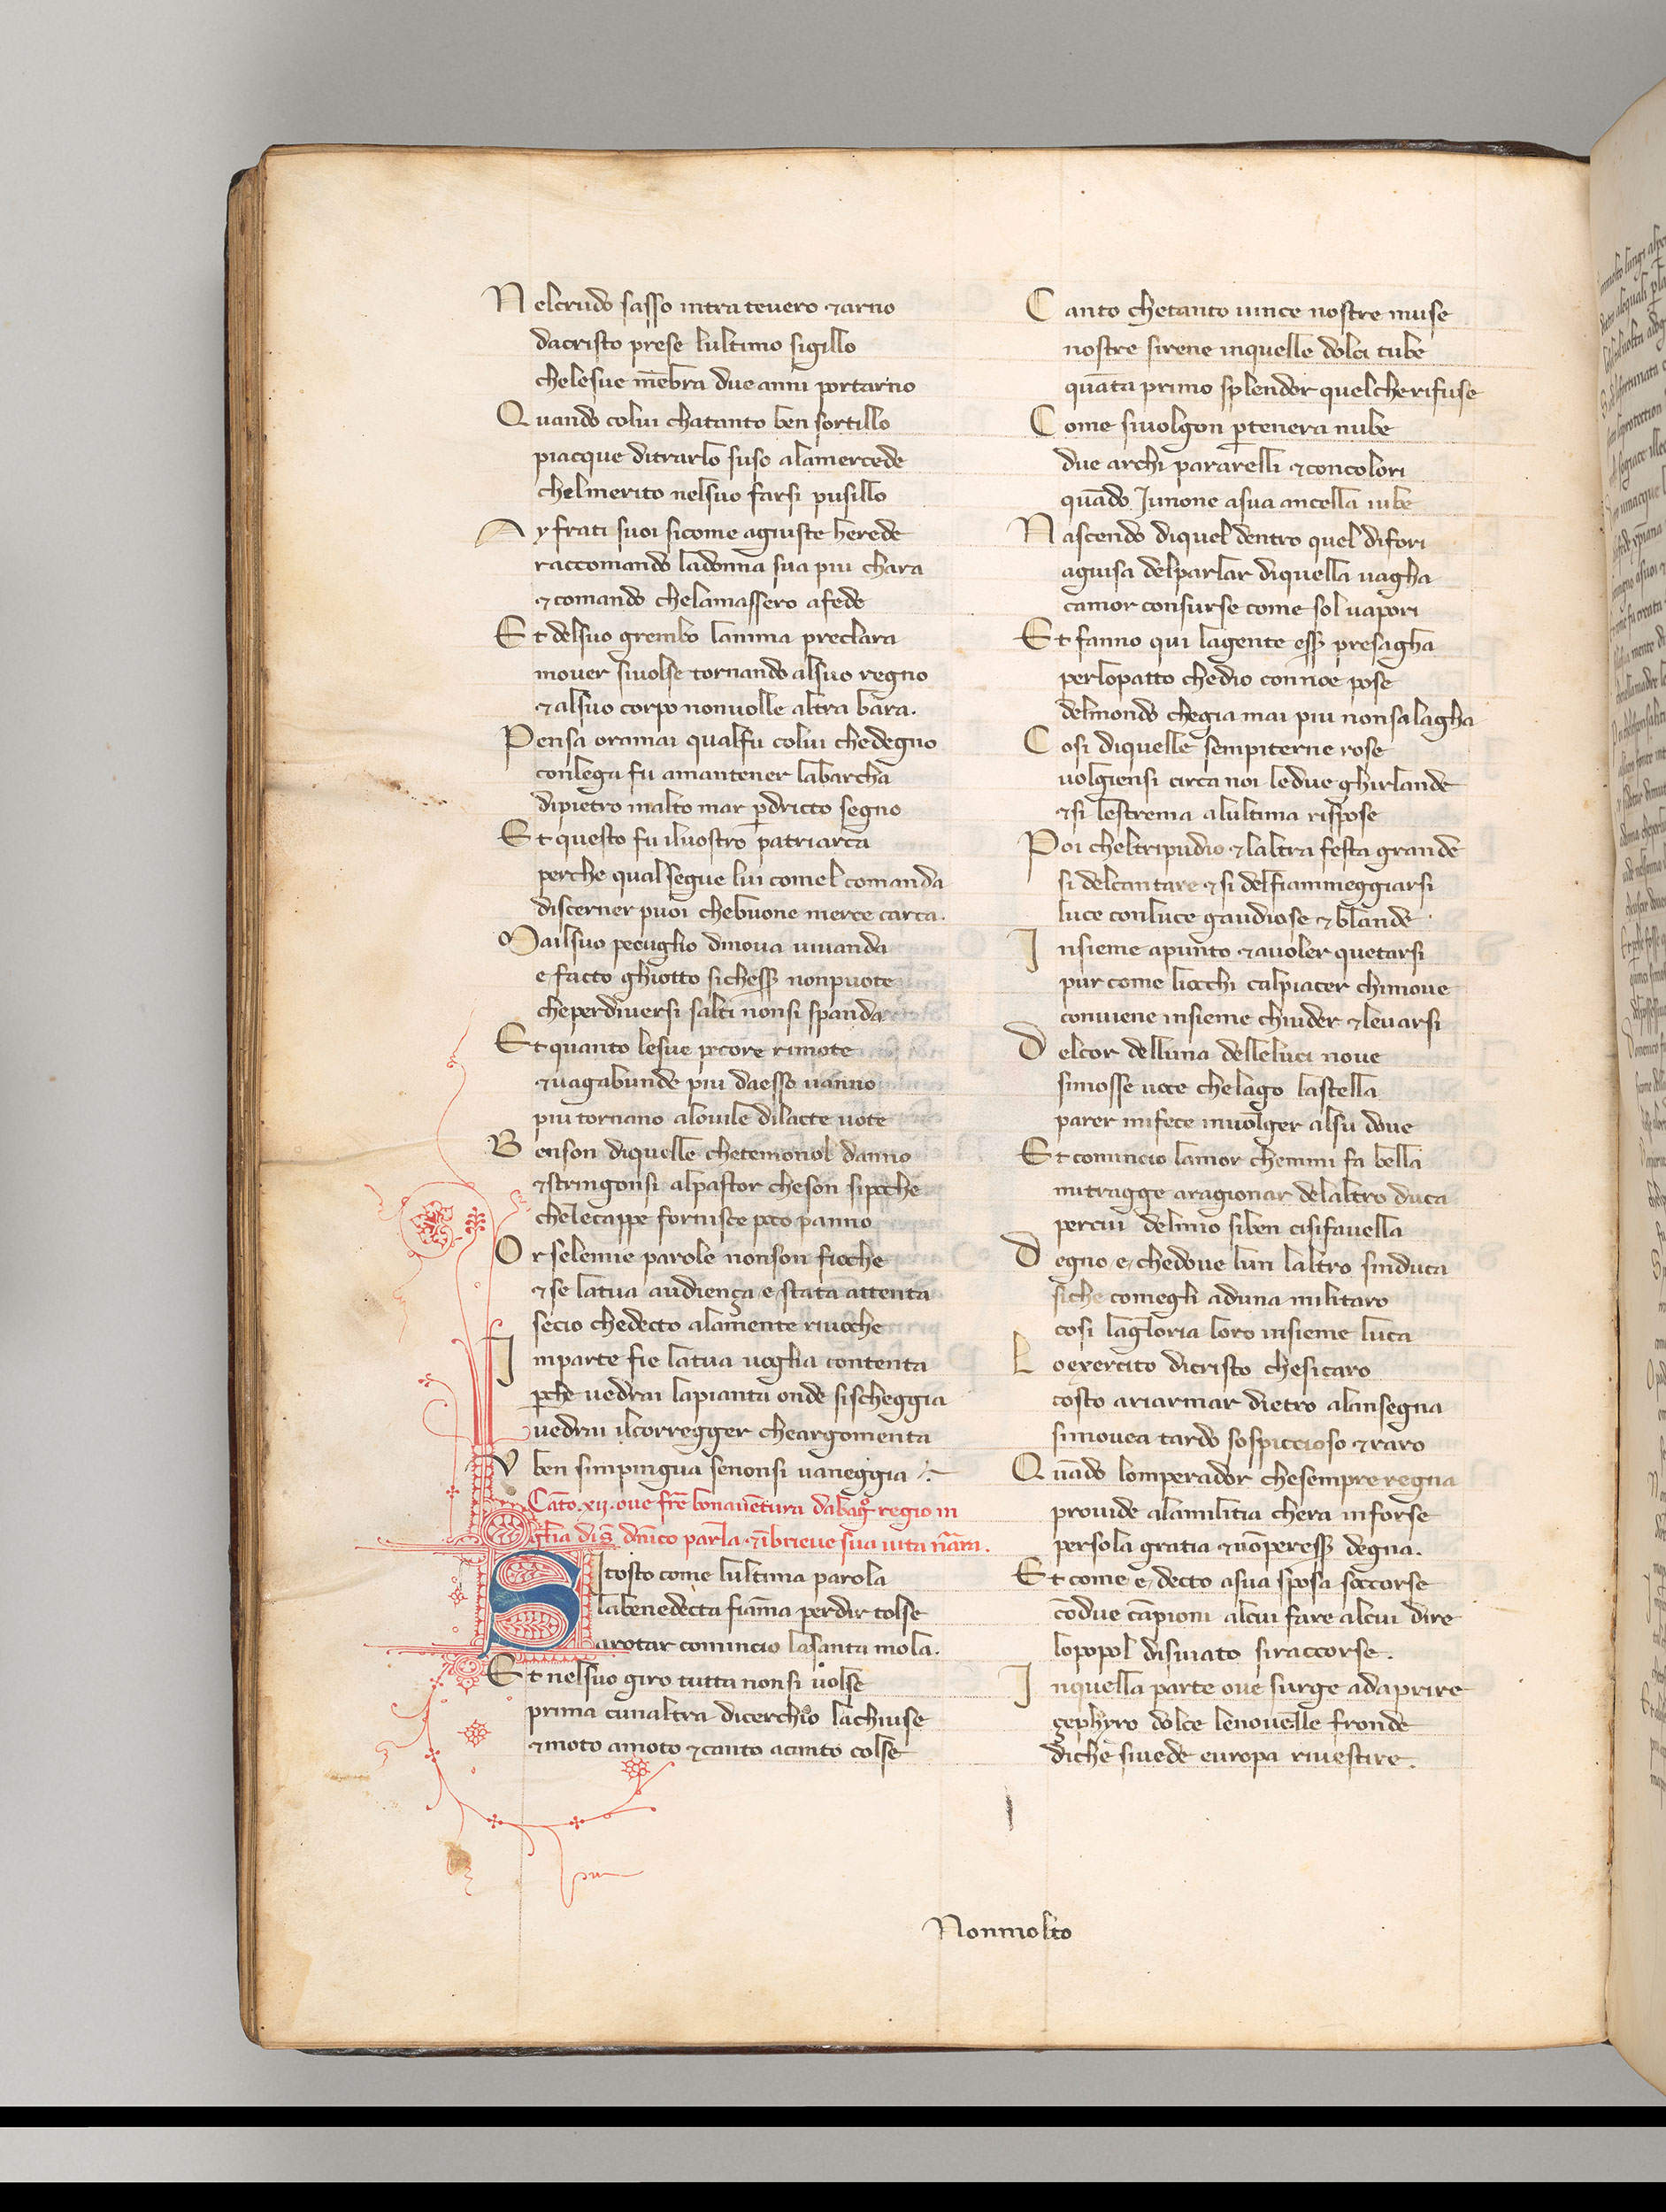 Nelcrudo sasso intra tevero ⁊arno
dacristo prese lultimo sigillo
chelesue mēbra due anni portarno
Quando colui chatanto ben sortillo
piacque ditrarlo suso alamercede
chelmerito nelsuo farsi pusillo
Ay frati suoi sicome agiuste herede
raccomando ladonna sua piu chara
⁊comando chelamassero afede
Et delsuo grembo lanima preclara
mover sivolse tornando alsuo regno
⁊alsuo corpo nonvolle altra bara.
Pensa oramai qualfu colui chedegno
conlega fu amantener labarcha
dipietro inalto mar ꝑdricto segno
Et questo fu ilnostro patriarca
perche qual segue lui comel comanda
discerner puoi chebuone merce carca.
Mailsuo peculglio dinova vivanda
e facto ghiotto sichess̄ nonpuote
cheperdiversi salti nonsi spanda
Et quanto lesue pecore rimote
⁊vagabunde piu daesso vanno
piu tornano alovile dilacte vote
Benson diquelle chetemonol danno
⁊stringonsi alpastor cheson sipoche
chelecappe fornisce poco panno
Or selemie parole nonson fioche
⁊se latua audiença e stata attenta
secio chedecto alamente rivoche
Inparte fie latua voglia contenta
ꝑche vedrai lapianta onde sischeggia
vedrai ilcorregger cheargomenta
U ben simpingua senonsi vaneggia
Cāto .xij. ove frē bonavētura dabaq̄ regio in
gl̄ia di s̄ dn̄ico parla ⁊ībrieve sua vita n̄ara.
Sitosto come lultima parola
labenedecta fiāma perdir tolse
arotar comincio lasanta mola.
Et nelsuo giro tutta nonsi volse
prima cunaltra dicerchio lachiuse
⁊moto amoto ⁊canto acanto colse
Canto chetanto vince nostre muse
nostre sirene inquelle dolci tube
quāta primo splendor quelcherifuse
Come sivolgon ꝑtenera nube
due archi pararelli ⁊concolori
quādo Junone asua ancella iube
Nascendo diquel dentro quel difori
aguisa delparlar diquella vagha
camor consurse come sol vapori
Et fanno qui lagente ess̄ presagha
perlopatto chedio connoe pose
delmondo chegia mai piu nonsalagha
Cosi diquelle sempiterne rose
volgiensi circa noi ledue ghirlande
⁊si lestrema alultima rispose
Poi cheltripudio ⁊laltra festa grande
si delcantare ⁊si delfiammeggiarsi
luce conluce gaudiose ⁊blande
Insieme apunto ⁊avoler quetarsi
pur come liocchi calpiacer chimove
conviene insieme chiuder ⁊levarsi
Delcor delluna delleluci nove
simosse voce chelago lastella
parer mifece invōlger alsu dove
Et comincio lamor chemmi fa bella
mitragge aragionar delaltro duca
percui delmio siben cisifavella
Degno e, chedove lun laltro sinduca
siche comegli aduna militaro
cosi lagloria loro insieme luca
Loexercito dicristo chesicaro
costo ariarmar dietro alansegna
simovea tardo sospiccioso ⁊raro
Quādo lomperador chesempre regna
provide alamilitia chera inforse
persola gratia ⁊nōperess̄ degna.
Et come e, decto asua sposa soccorse
cōdue cāpioni alcui fare alcui dire
lopopol disviato siraccorse.
Inquella parte ove surge adaprire
çephyro dolce lenovelle fronde
diche sivede europa rivestire.
Nonmolto